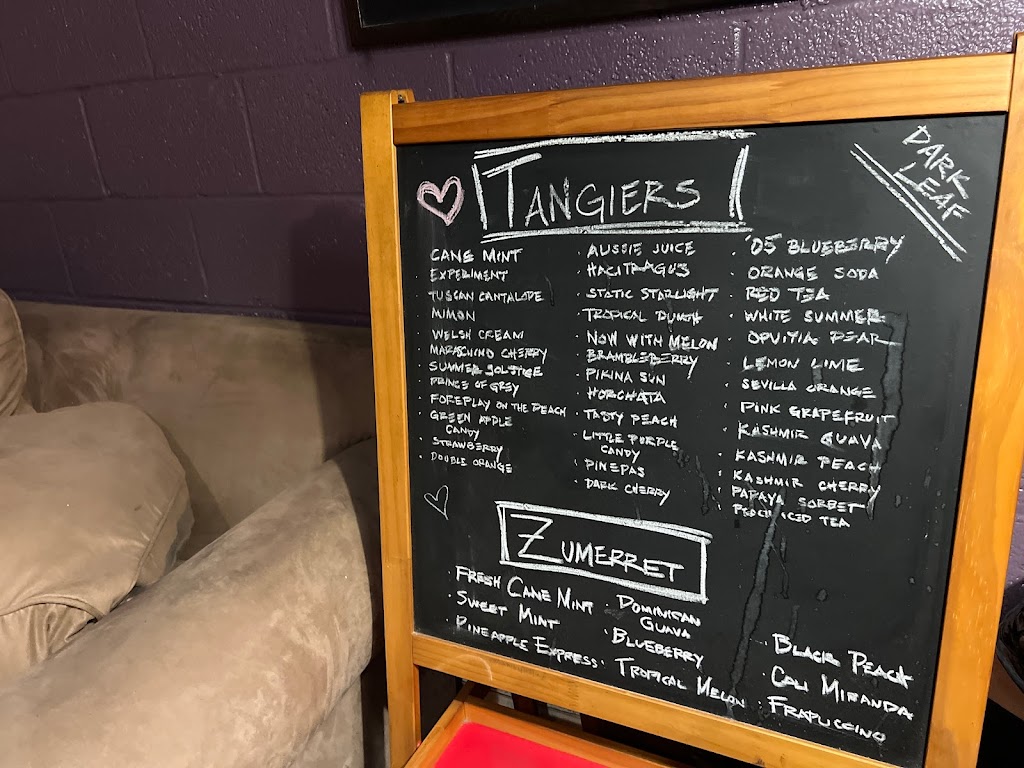 TANGIERS
DARK
LEAF
CANE MINT
EXPERIMENT
TUSCAN CANTALOPE
MIMON
WELSH CREAM
MARASCHINO CHERRY
SUMMER SOLSTICE
PRINCE OF GREY
FOREPLAY ON THE PEACH
GREEN APPLE
CANDY
STRAWBERRY
DOUBLE ORANGE
AUSSIE JUICE
HACITRAGUS
STATIC STARLIGHT
TROPICAL PUNCH
NOW WITH MELON
BRAMBLEBERRY
PIKINA SUN
HORCHATA
TASTY PEACH
LITTLE PURPLE
CANDY
PINEPAS
DARK CHERRY
'05 BLUEBERRY
ORANGE SODA
RED TEA
WHITE SUMMER
OPUTIA PEAR
LEMON LIME
SEVILLA ORANGE
PINK GRAPEFRUIT
KASHMIR GUAVA
KASHMIR PEACH
KASHMIR CHERRY
PAPAYA SORBET
PEACH ICED TEA
ZUMERRET
FRESH CANE MINT
SWEET MINT
PINEAPPLE EXPRESS
DOMINICAN
GUAVA
BLUEBERRY
TROPICAL MELON
BLACK PEACH
CALI MIRANDA
FRAPUCCINO